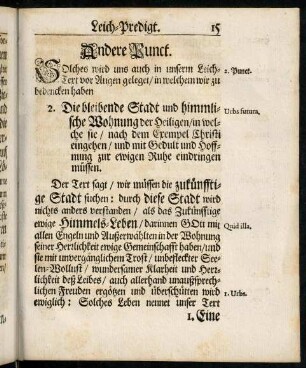 Leich-Predigt. 15
Andere Punct.
Solches wird uns auch in unserm Leich-
Text vor Augen geleget/ in welchem wir zu
bedencken haben
2. Punct.
2. Die bleibende Stadt und himmli-
sche Wohnung der Heiligen/ in wel-
che sie/ nach dem Exempel Christi
eingehen/ und mit Gedult und Hoff-
nung zur ewigen Ruhe eindringen
müssen.
Urbs futura.
Der Text sagt/ wir müssen die zukünffti-
ge Stadt suchen: durch diese Stadt wird
nichts anders verstanden/ als das Zukünfftige
ewige Himmels-Leben/ darinnen GOtt mit
allen Engeln und Außerwählten in der Wohnung
seiner Herrlichkeit ewige Gemeinschafft haben/ und
sie mit unvergänglichem Trost/ unbefleckter See-
len-Wollust/ wundersamer Klarheit und Herr-
lichkeit deß Leibes/ auch allerhand unaußsprech-
lichen Freuden ergötzen und überschütten wird
ewiglich: Solches Leben nennet unser Text
Quid illa.
1. Urbs.
1. Eine